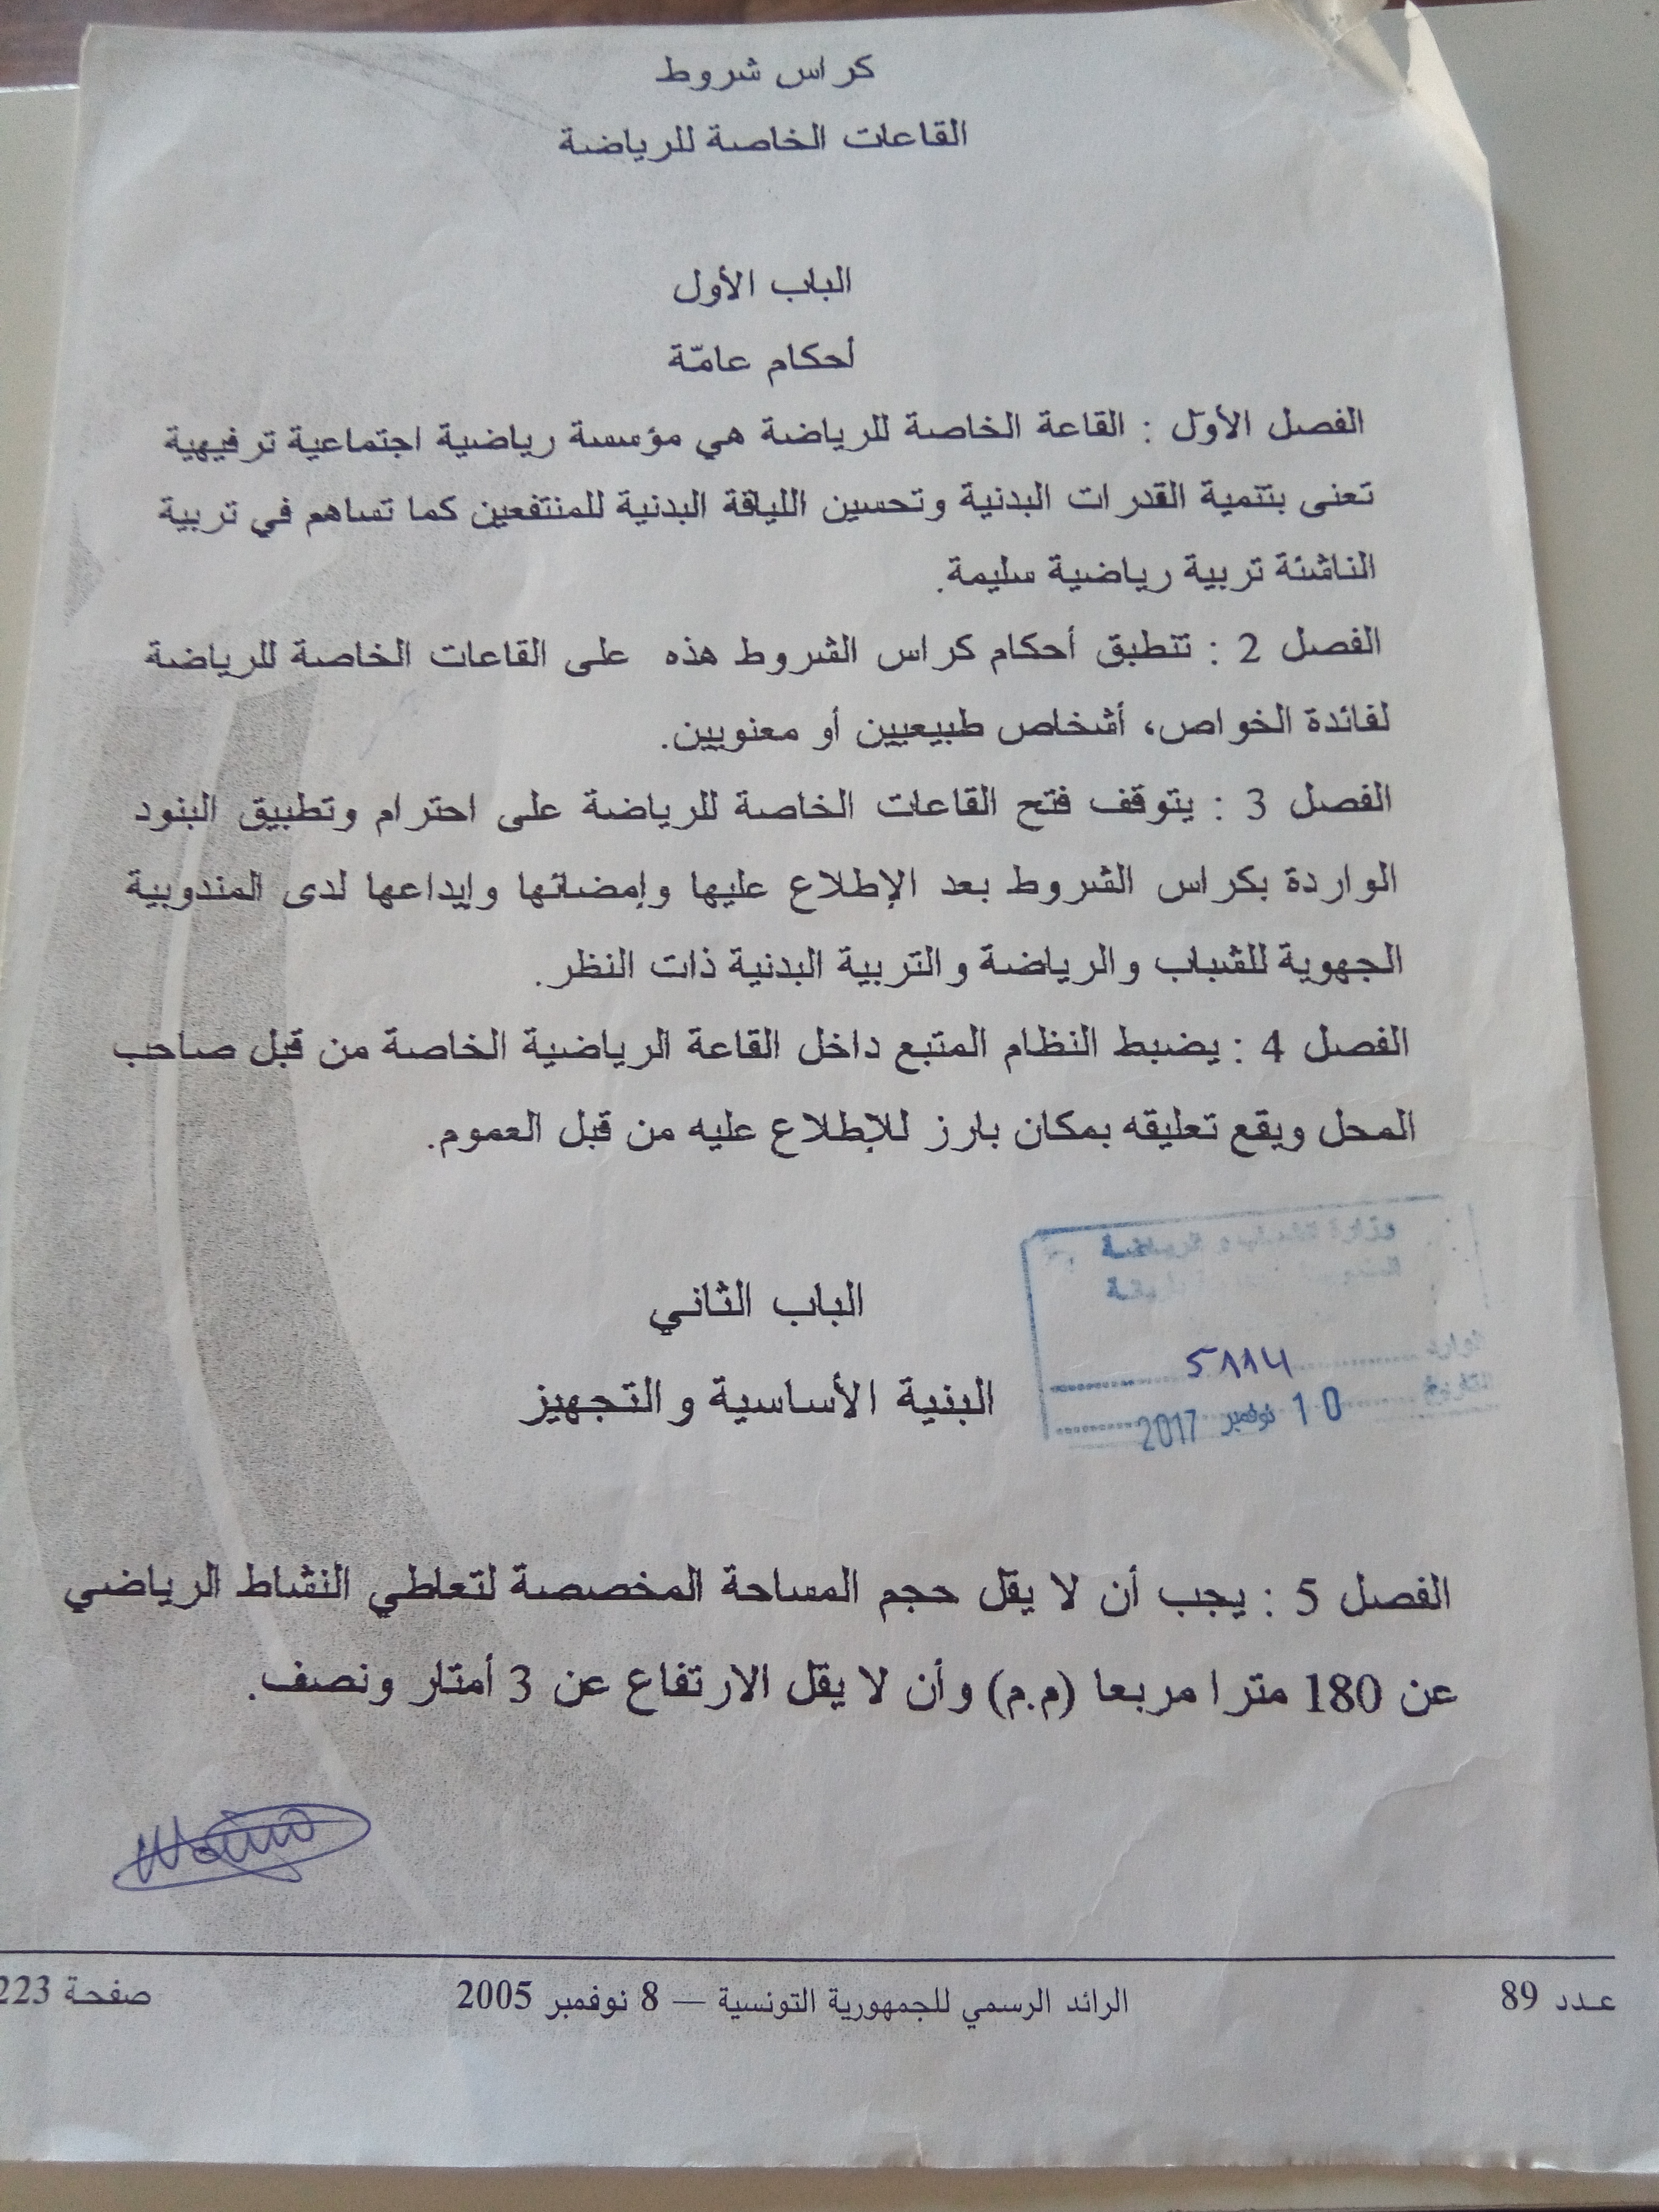 كراس شروط
القاعات الخاصة للرياضة
الباب الأول
أحكام عامّة
الفصل الأوّل : القاعة الخاصة للرياضة هي مؤسسة رياضية اجتماعية ترفيهية
تعنى بتنمية القدرات البدنية وتحسين اللياقة البدنية للمنتفعين كما تساهم في تربية
الناشئة تربية رياضية سليمة.
الفصل 2 : تنطبق أحكام كراس الشروط هذه على القاعات الخاصة للرياضة
لفائدة الخواص، أشخاص طبيعيين أو معنويين.
الفصل 3 : يتوقف فتح القاعات الخاصة للرياضة على احترام وتطبيق البنود
الواردة بكراس الشروط بعد الإطلاع عليها وإمضائها وإيداعها لدى المندوبية
الجهوية للشباب والرياضة والتربية البدنية ذات النظر.
الفصل 4 : يضبط النظام المتبع داخل القاعة الرياضية الخاصة من قبل صاحب
المحل ويقع تعليقه بمكان بارز للإطلاع عليه من قبل العموم.
وزارة الشباب و الرياضة
5114
10 نوفمبر 2017
الباب الثاني
البنية الأساسية والتجهيز
الفصل 5 : يجب أن لا يقل حجم المساحة المخصصة لتعاطي النشاط الرياضي
عن 180 مترا مربعا (م.م) وأن لا يقل الارتفاع عن 3 أمتار ونصف.
عـدد 89 الرائد الرسمي للجمهورية التونسية — 8 نوفمبر 2005 صفحة 223